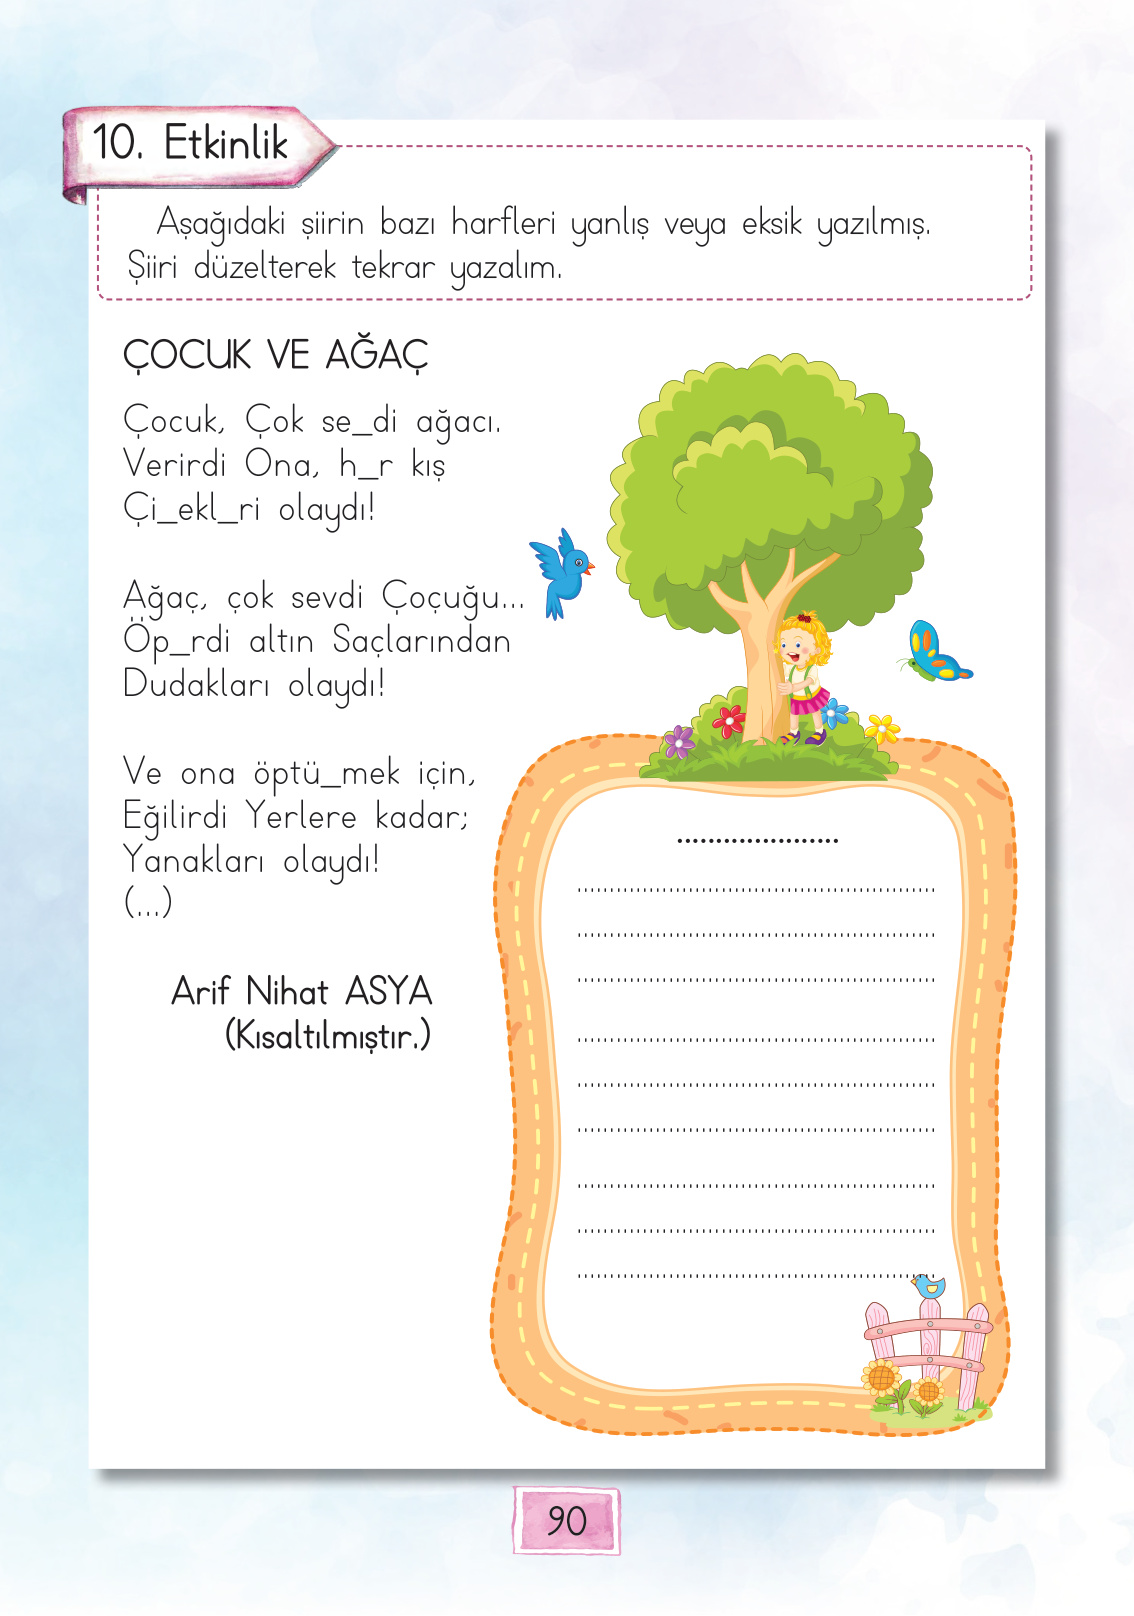 10. Etkinlik
Aşağıdaki şiirin bazı harfleri yanlış veya eksik yazılmış.
Şiiri düzelterek tekrar yazalım.
ÇOCUK VE AĞAÇ
Çocuk, Çok se_di ağacı.
Verirdi Ona, h_r kış
Çi_ekl_ri olaydı!
Ağaç, çok sevdi Çoçuğu...
Öp_rdi altın Saçlarından
Dudakları olaydı!
Ve ona öptü_mek için,
Eğilirdi Yerlere kadar;
Yanakları olaydı!
(...)
Arif Nihat ASYA
(Kısaltılmıştır.)
90